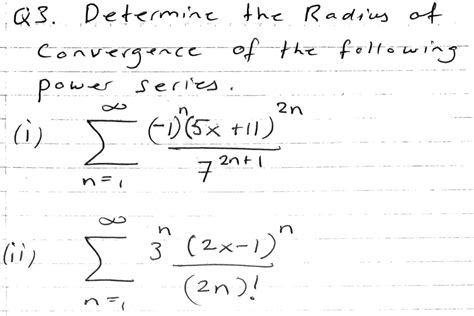 Q3. Determine the Radius of
Convergence of the following
power series.
(i) ∞ Σ n=1 (-1)^n (5x+11)^{2n} / 7^{2n+1}
(ii) ∞ Σ n=1 3^n (2x-1)^n / (2n)!